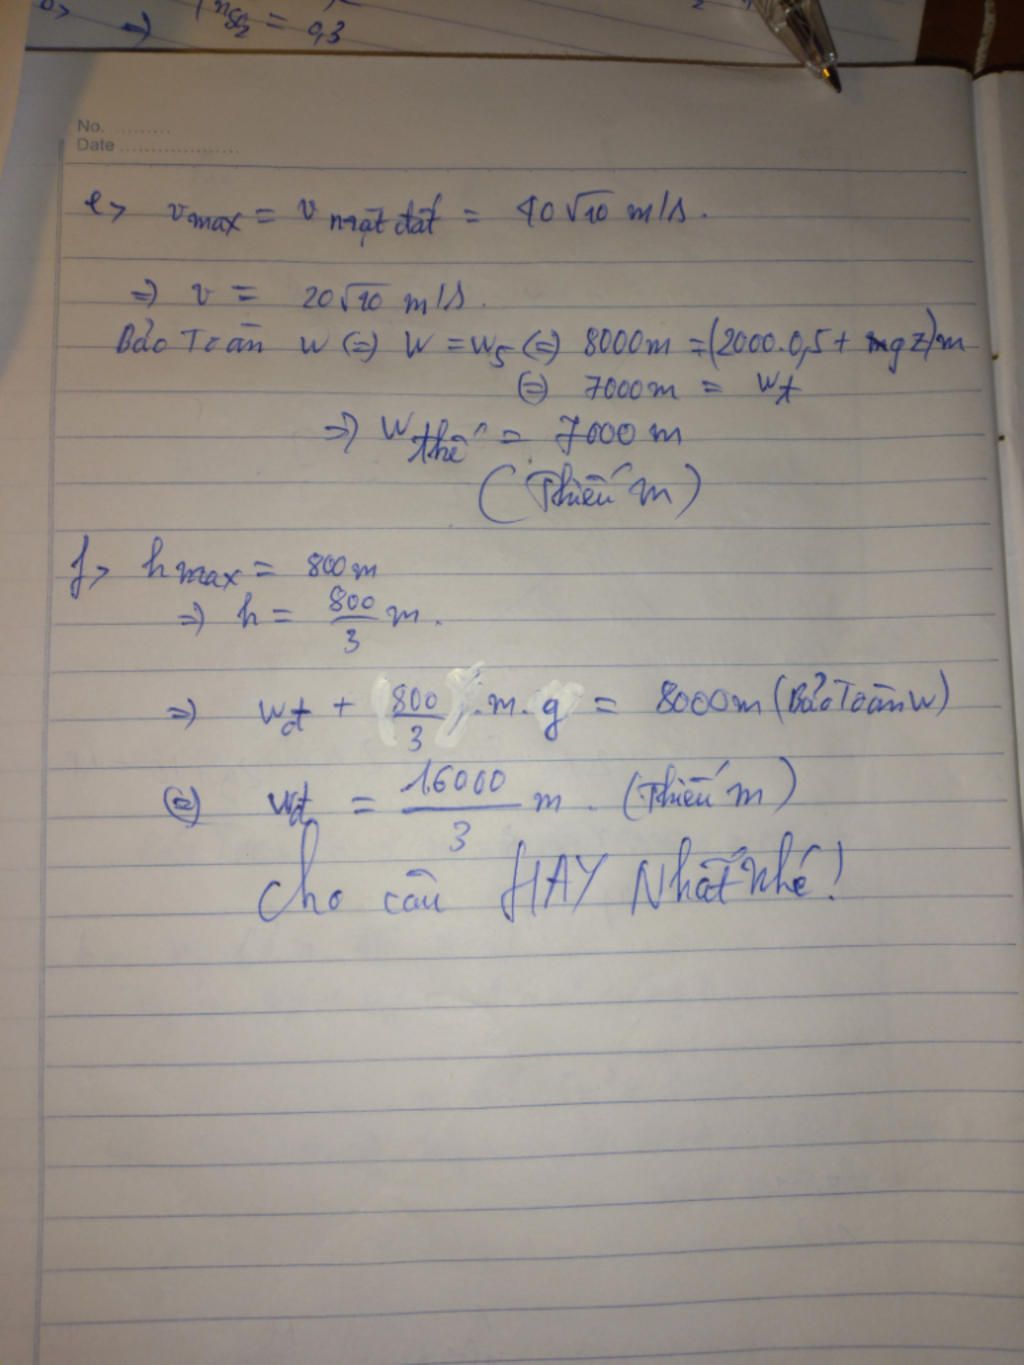 ⇒ n_SO₂ = 0,3
No. ..........
Date ....................
e> v_max = v_mặt đất = 40√10 m/s.
⇒ v = 20√10 m/s.
Bảo Toàn W ⇔ W = W₅ ⇔ 8000m = (2000.0,5 + gz)m
⇔ 7000m = W_t
⇒ W_thế = 7000 m
(Thiếu m)
f> h_max = 800m
⇒ h = 800/3 m.
⇒ W_đ + 800/3 .m.g = 8000m (Bảo Toàn W)
⇔ W_đ = 16000/3 m. (Thiếu m)
Cho câu HAY NHất nhé!